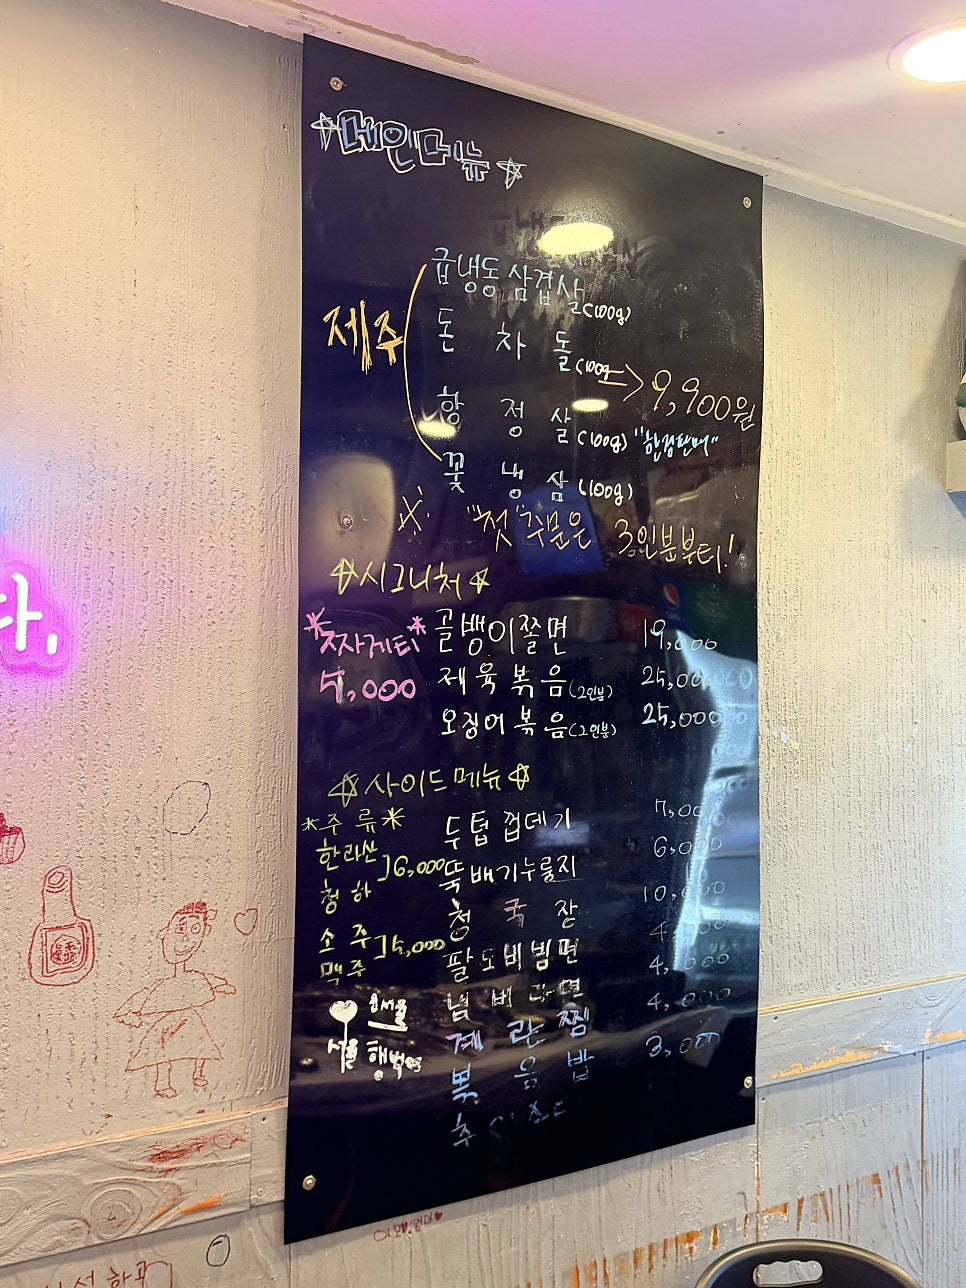 메인메뉴
제주
급냉동삼겹살(100g)
돈 차 돌(100g
→ 9,900원
항 정 살(100g) "한정판매"
꽃 냉 삼(100g)
"첫"주문은 3인분부터!
시그니처
골뱅이쫄면 19,000
짜게티
5,000
제육볶음(2인분) 25,000
오징어볶음(2인분) 25,000
사이드메뉴
주 류
한라산
청 하
]6,000
소 주
맥 주
]5,000
두텁껍데기 7,000
뚝배기누룽지 6,000
청 국 장 10,000
팔도비빔면 4,000
냄비라면 4,000
계 란 찜 4,000
볶 음 밥 3,000
추
서울
다.